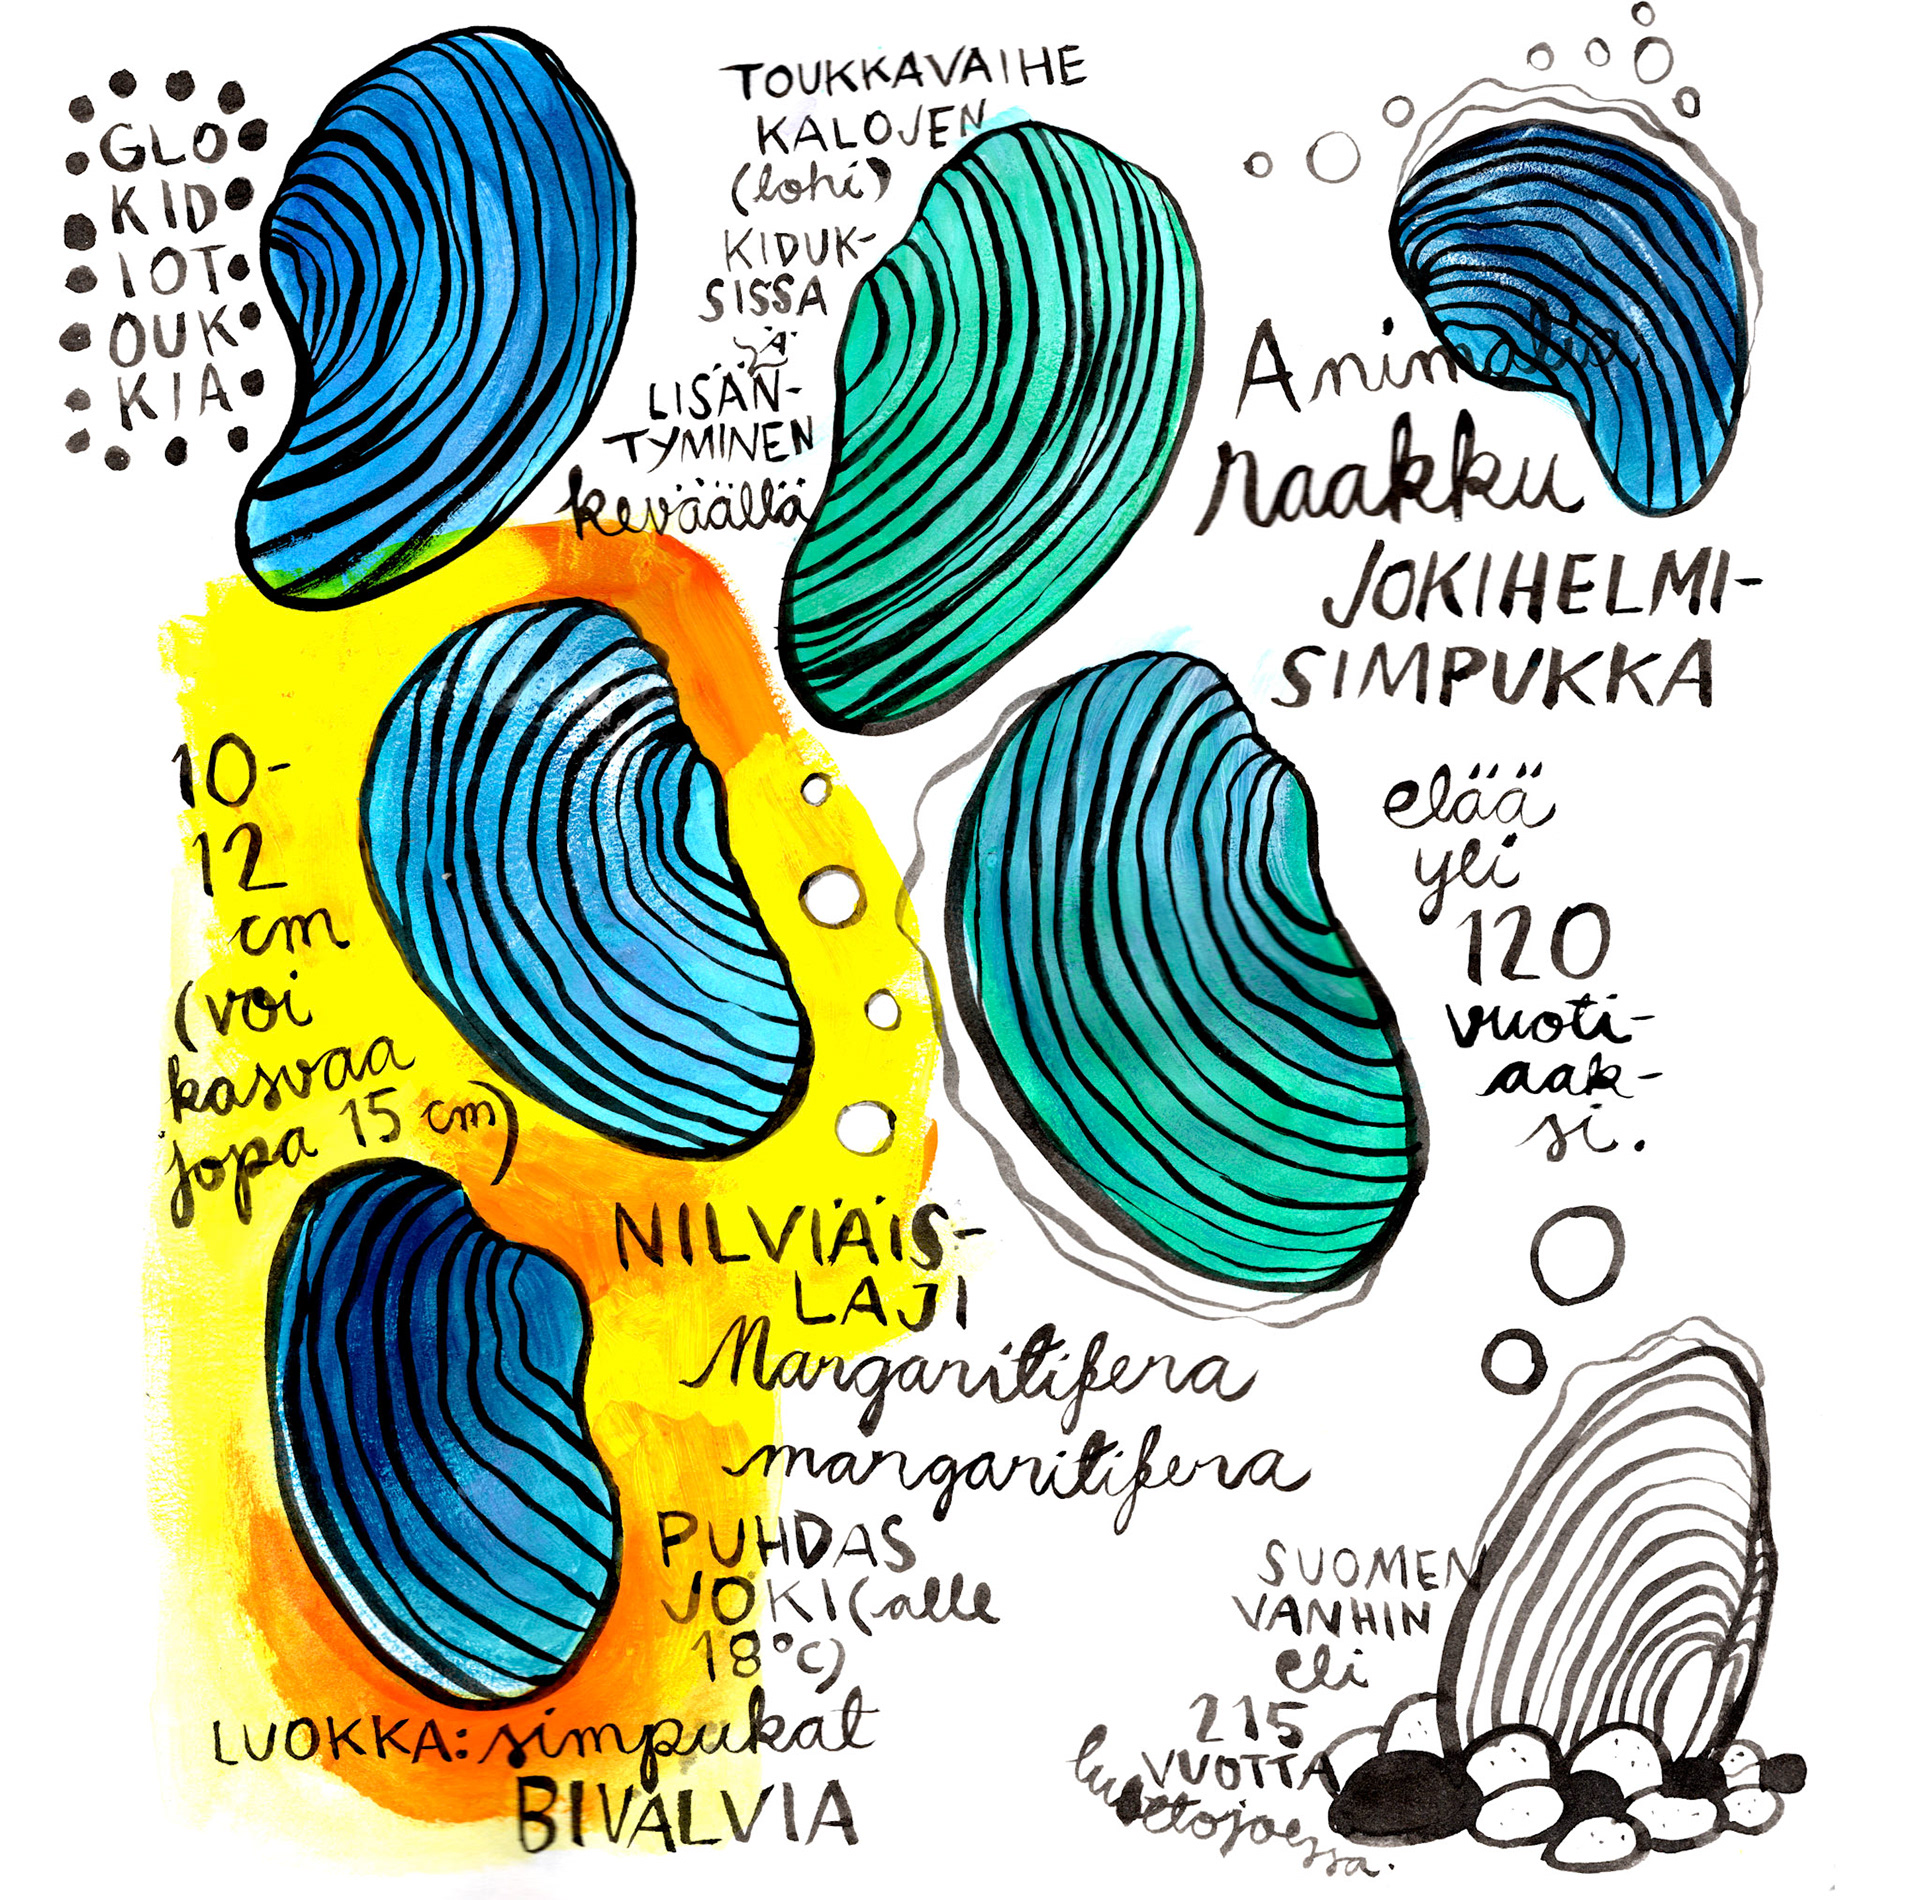 GLO
KID
IOT
OUK
KIA
TOUKKAVAIHE
KALOJEN
(lohi)
KIDUK-
SISSA
LISÄÄN-
TYMINEN
keväällä
Animalia
raakku
JOKIHELMI-
SIMPUKKA
elää
yli
120
vuoti-
aak-
si.
10-
12
cm
(voi
kasvaa
jopa 15 cm)
NILVIÄIS-
LAJI
Margaritifera
margaritifera
PUHDAS
JOKI (alle
18°C)
LUOKKA: simpukat
BIVALVIA
SUOMEN
VANHIN
eli
215
VUOTTA